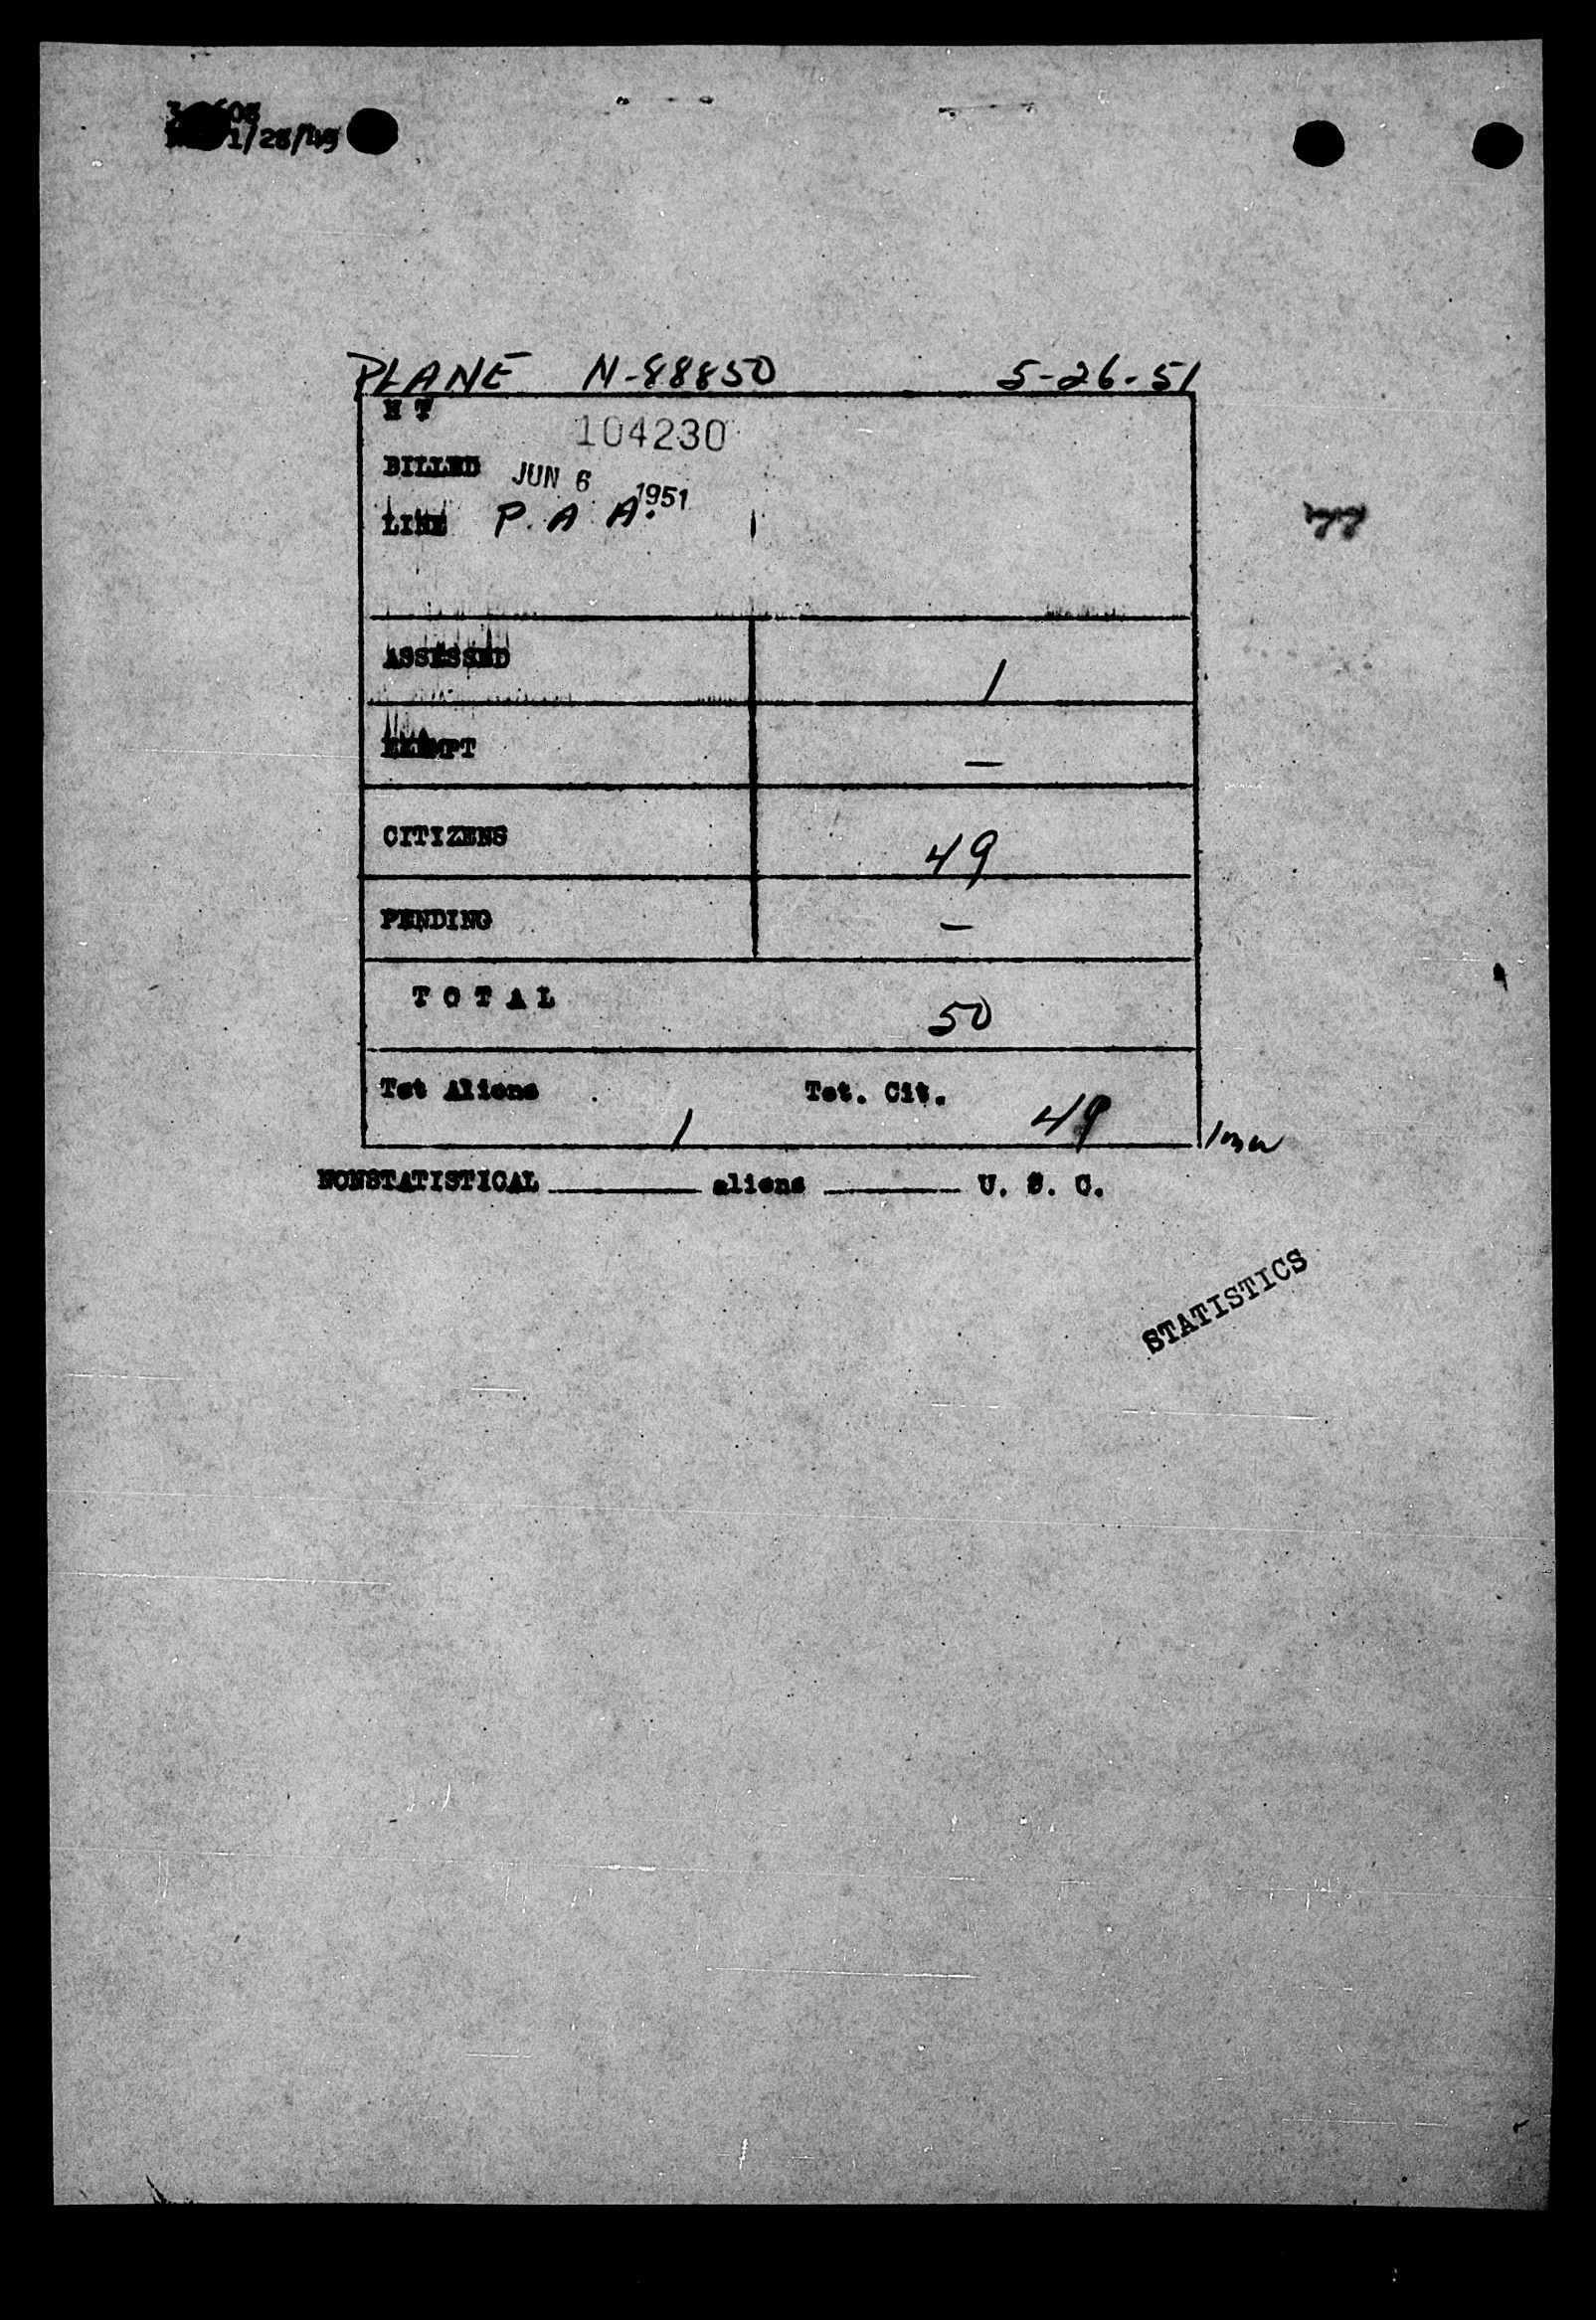 1/28/49
PLANE N-88850 5-26-51
H T 104230
BILLED JUN 6 1951
LINE P. A A.
77
ASSESSED 1
EXEMPT —
CITIZENS 49
PENDING —
T O T A L 50
Tot Aliens 1 Tot. Cit. 49
NONSTATISTICAL ____ aliens ____ U. S. C.
STATISTICS